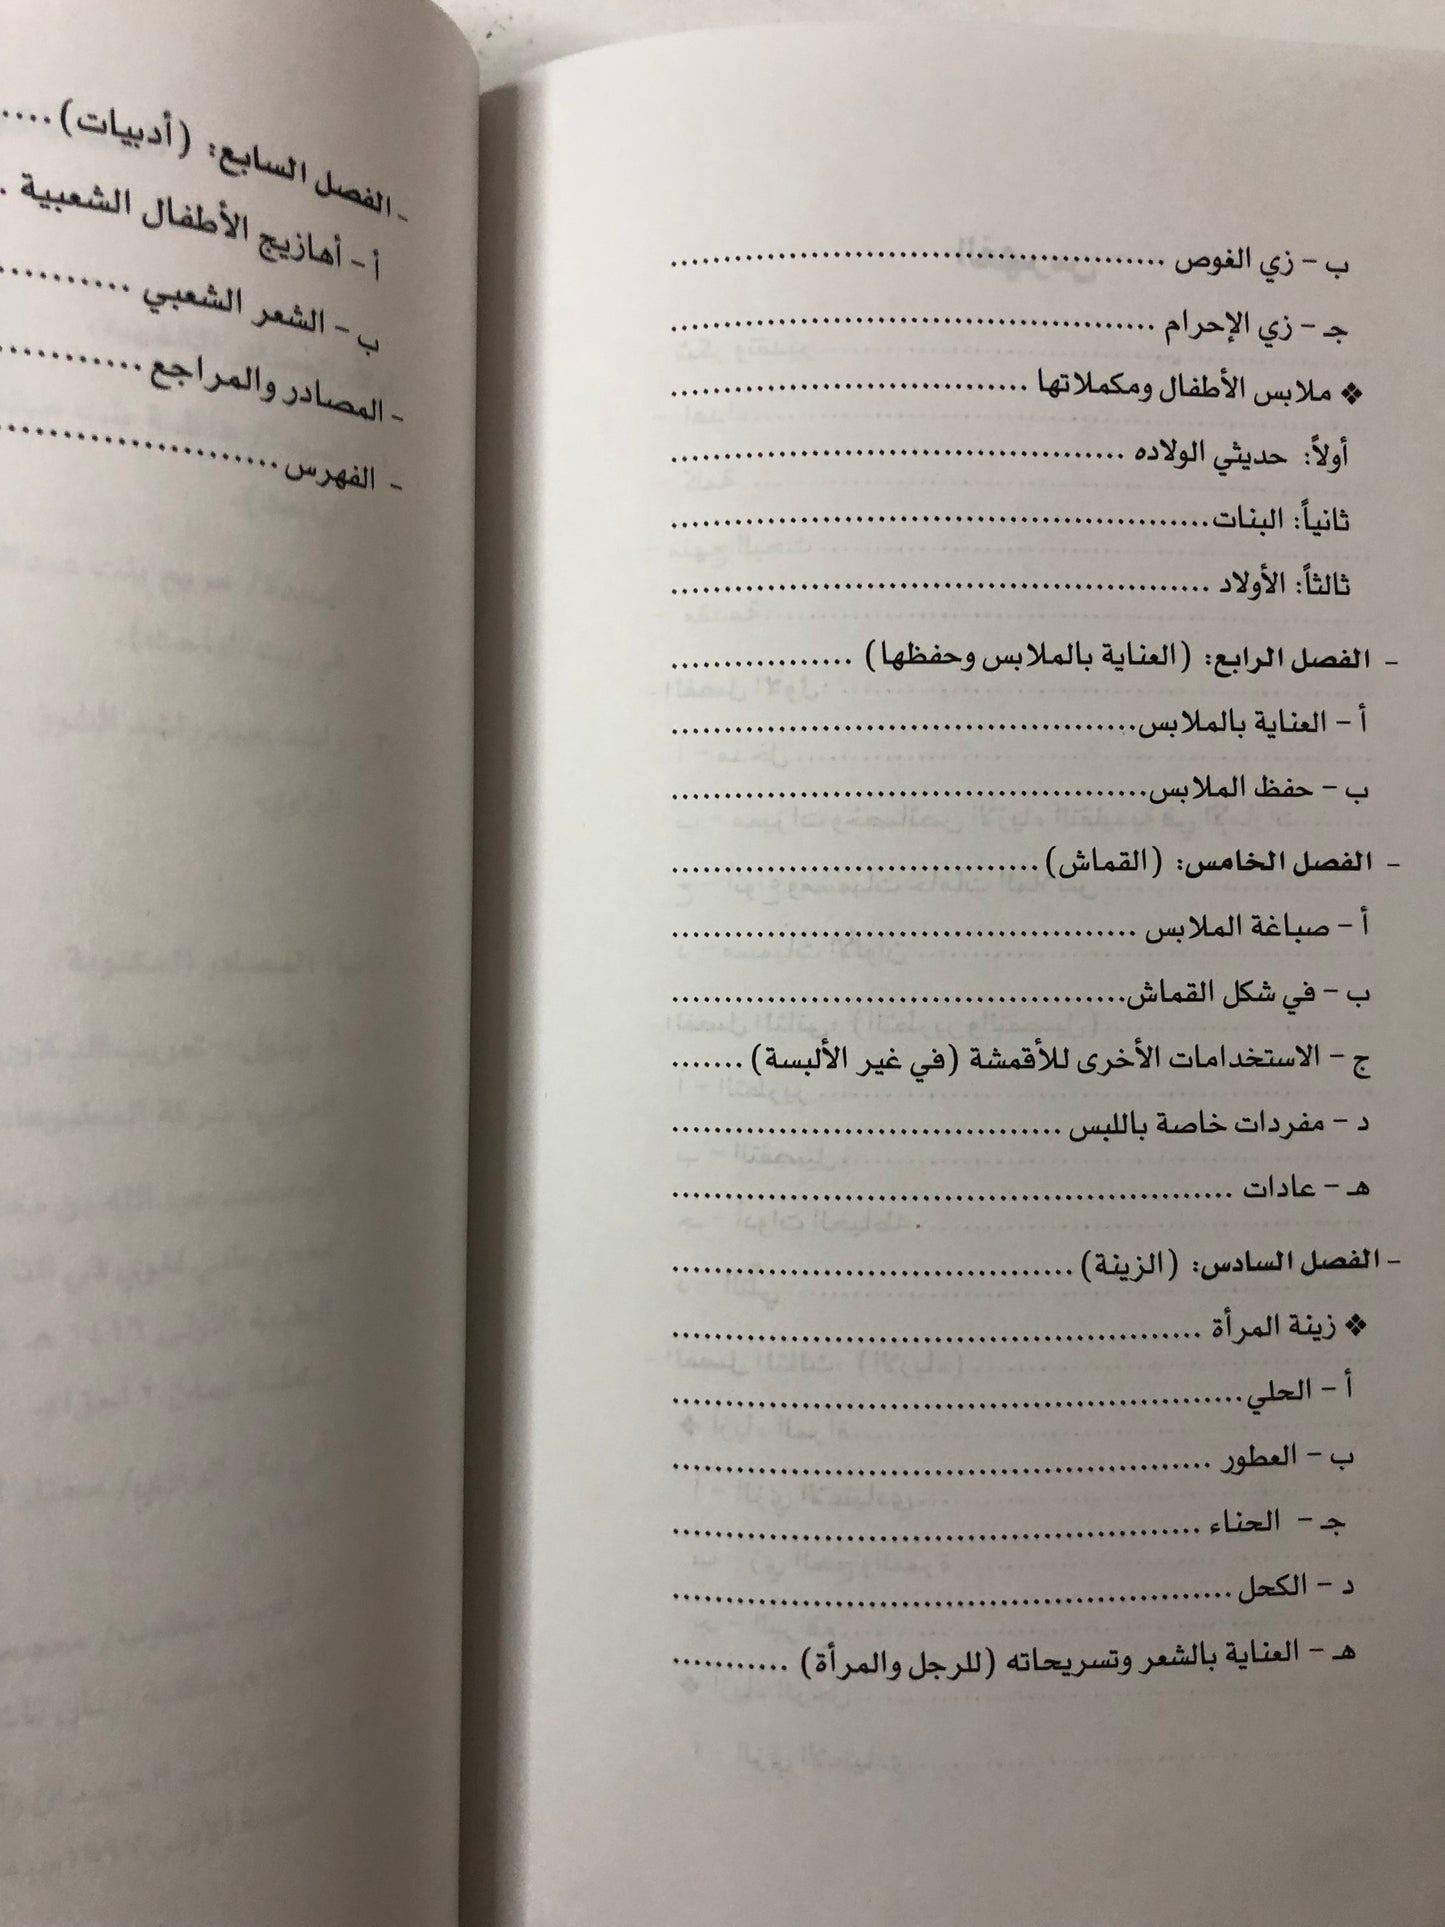 ب - زي الغوص ..............................................
جـ - زي الإحرام ..............................................
❖ ملابس الأطفال ومكملاتها ..................................
أولاً: حديثي الولاده ..........................................
ثانياً: البنات..................................................
ثالثاً: الأولاد ..................................................
- الفصل الرابع: (العناية بالملابس وحفظها) .................
أ - العناية بالملابس...........................................
ب - حفظ الملابس............................................
- الفصل الخامس: (القماش)..................................
أ - صباغة الملابس ...........................................
ب - في شكل القماش..........................................
ج - الاستخدامات الأخرى للأقمشة (في غير الألبسة) .......
د - مفردات خاصة باللبس ....................................
هـ - عادات ....................................................
- الفصل السادس: (الزينة).....................................
❖ زينة المرأة ..................................................
أ - الحلي.....................................................
ب - العطور ..................................................
جـ - الحناء ..................................................
د - الكحل....................................................
هـ - العناية بالشعر وتسريحاته (للرجل والمرأة) ...........
- الفصل السابع: (أدبيات)....
أ - أهازيج الأطفال الشعبية .
ب - الشعر الشعبي ..........
- المصادر والمراجع...........
- الفهرس......................